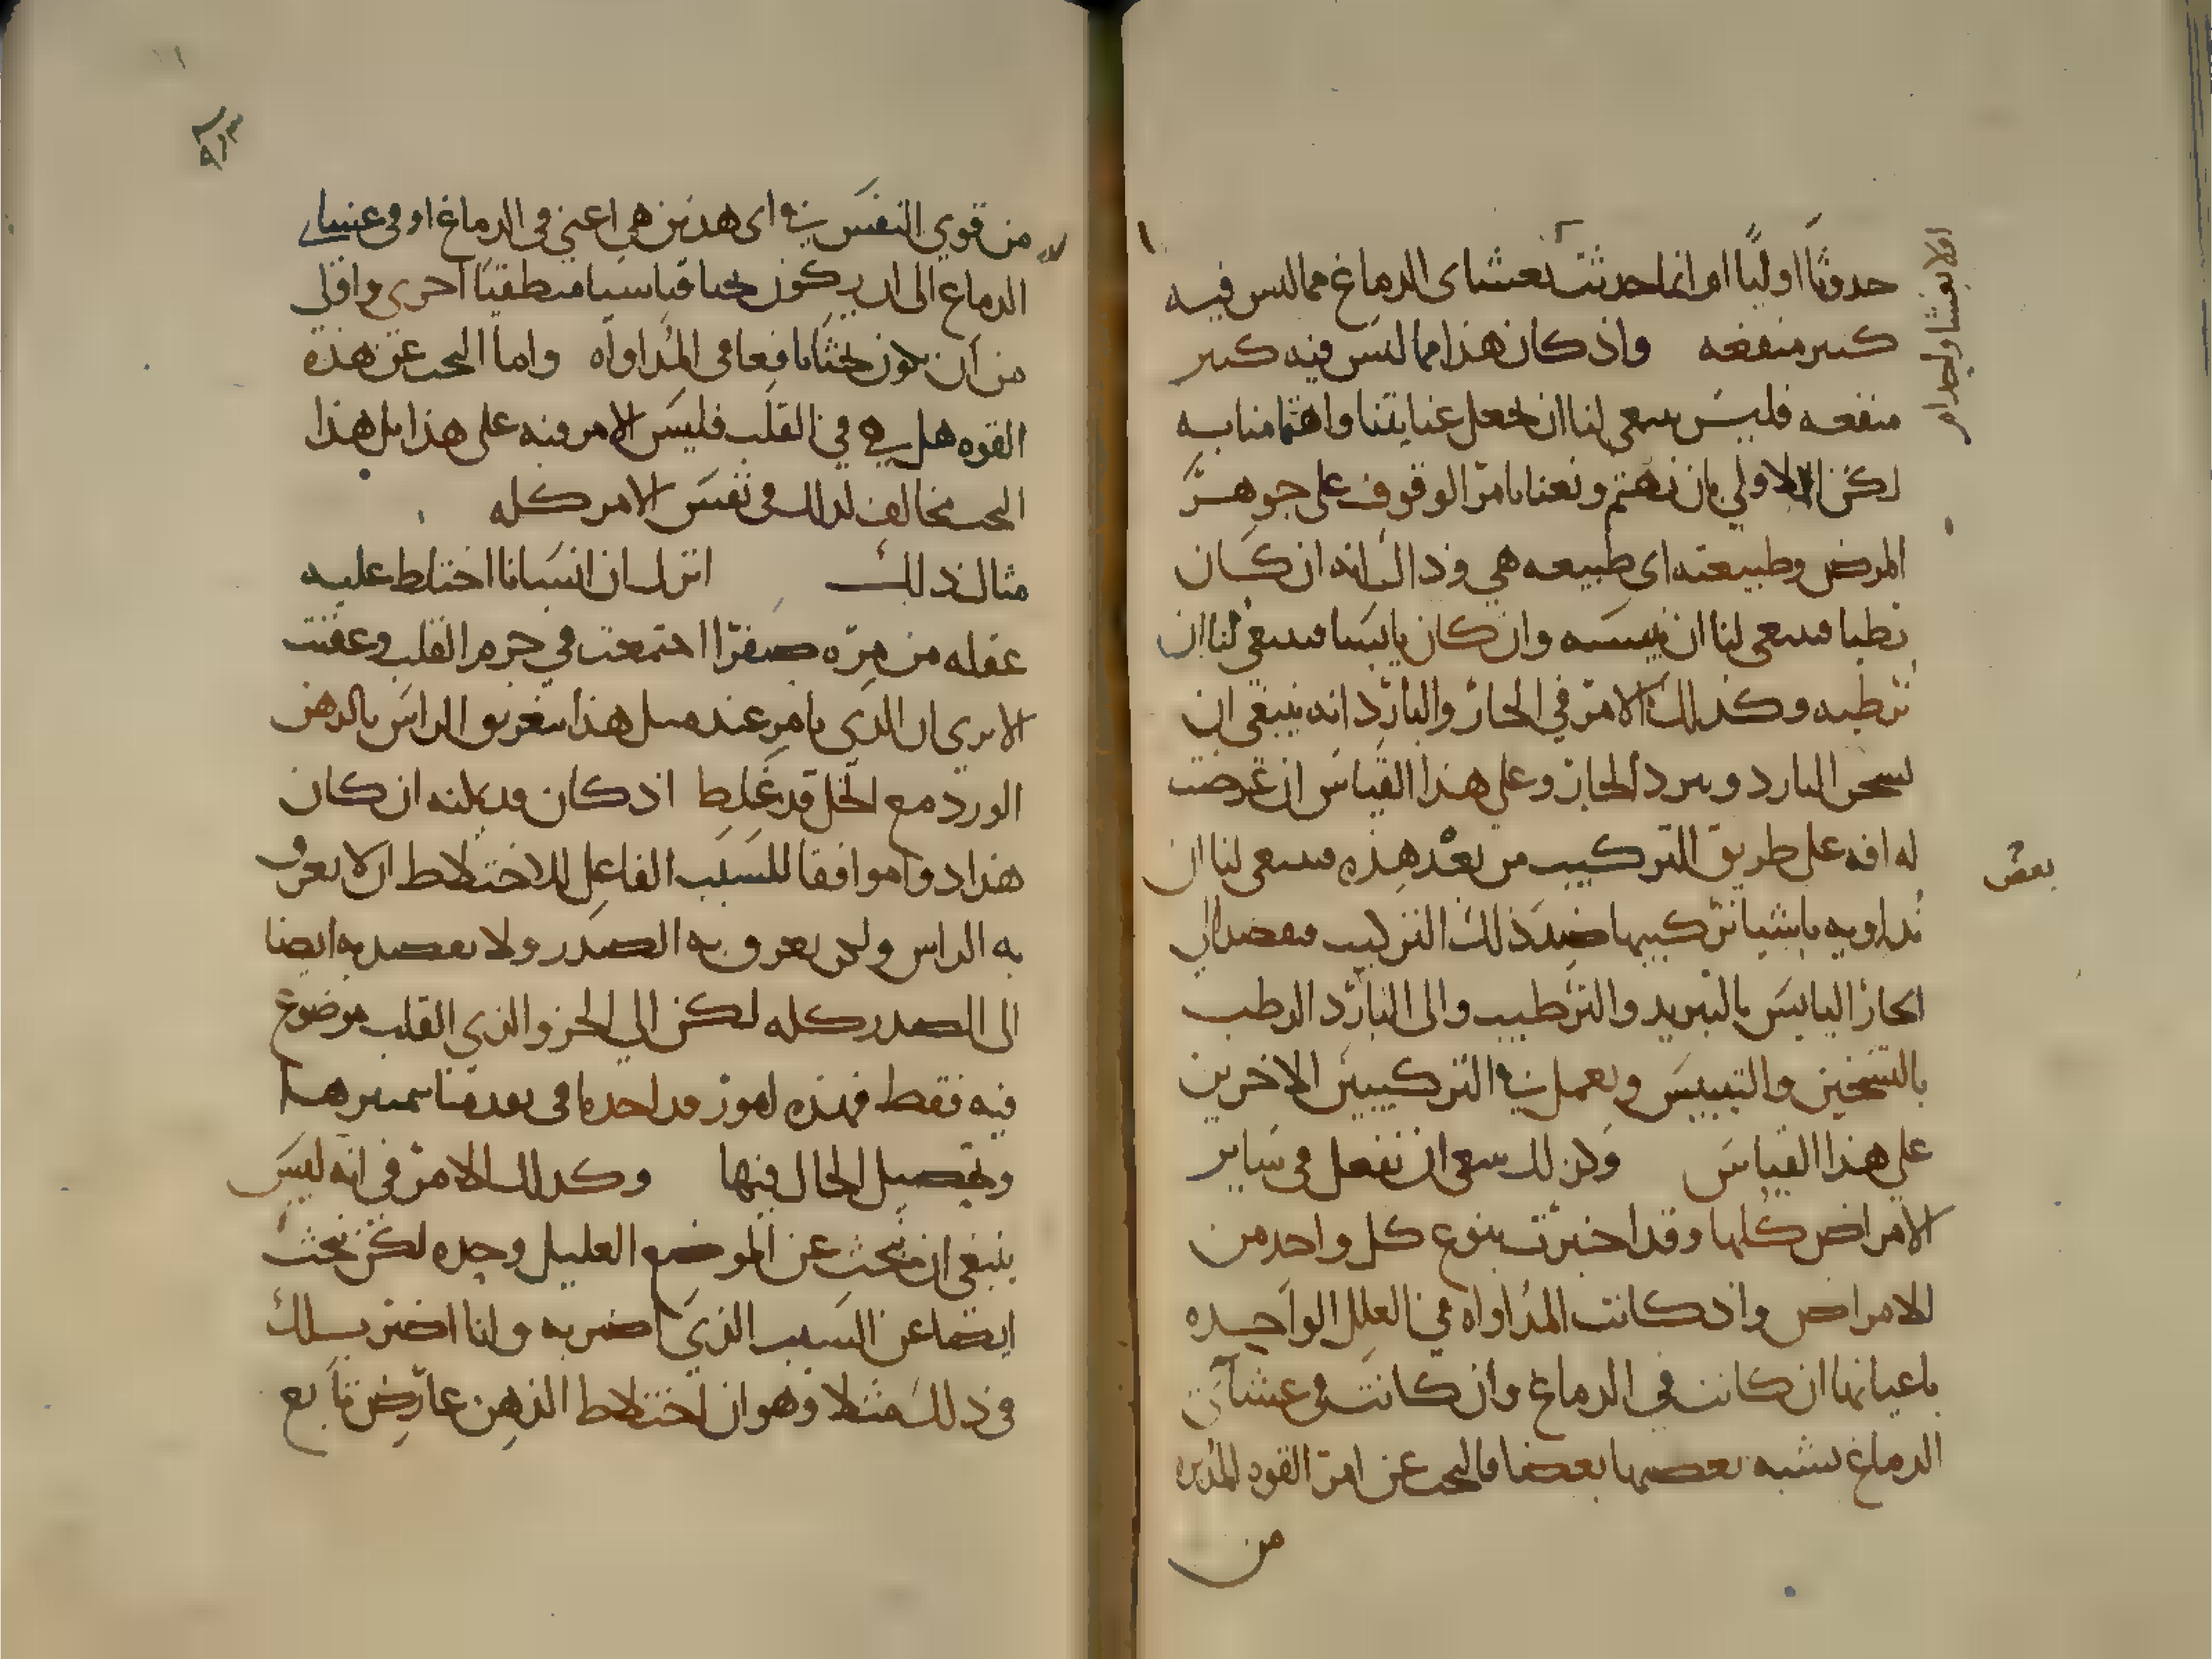 حدوثا اوليا او انما حدثت بعشاى الدماغ مما ليس فيه
كبير منفعه واذ كان هذا مما ليس فيه كبير
منفعه فليس ينبغى لنا ان نجعل عنايتنا واهتمامنا به
لكن الاولي بان نهتم ونعنا بامر الوقوف على جوهر
المرض وطبيعته اى طبيعه هي وذالك انه ان كان
رطبا فينبغى لنا ان نيبسه وان كان يابسا فينبغى لنا ان
نرطبه وكذلك الامر في الحار والبارد انه ينبغي ان
نسخن البارد ونبرد الحار وعلى هذا القياس ان عرضت
له افه على طريق التركيب من بعد هذه فينبغى لنا ان
نداويه باشيا تركيبها ضد ذلك التركيب فنقصد الى
الحار اليابس بالتبريد والترطيب والى البارد الرطب
بالتسخين والتيبيس ونعمل في التركيبين الاخرين
على هذا القياس وكذلك ينبغى ان نفعل في ساير
الامراض كلها وقد اخبرت بنوع كل واحد من
الامراض واذ كانت المداواه في العلل الواحده
باعيانها ان كانت في الدماغ وان كانت في عشاى
الدماغ يشبه بعضها بعضا فالبحث عن امر القوه المدبره
من
اولا بغشاو
بعض
من قوي النفس في اى هذين هي اعني في الدماغ او في عشاى
الدماغ الى ان يكون بحثا قياسيا منطقيا احرى واقل
من ان يكون بحثا نافعا في المداواه واما البحث عن هذه
القوه هل هي في القلب فليس الامر فيه على هذا بل هذا
البحث مخالف لذلك في نفس الامر كله
مثال ذلك انزل ان انسانا اختلط عليه
عقله من مره صفرا اجتمعت في جرم القلب وعفنت
الا ترى ان الذي يامر عند مثل هذا بتغريق الراس بالدهن
الورد مع الخل قد غلط اذ كان قد يمكنه ان كان
هذا دوا موافقا للسبب الفاعل للاختلاط ان لا يغرق
به الراس ولكن يغرق به الصدر ولا يقصد به ايضا
الى الصدر كله لكن الى الجزو الذي القلب موضوع
فيه فقط فهذه امور قد اخذنا في تقدمنا تمييزها
وتحصيل الحال فيها وكذلك الامر في انه ليس
ينبغى ان نبحث عن الموضع العليل وحده لكن نبحث
ايضا عن السبب الذي اضر به وانا اضرب لك
في ذلك مثلا وهو ان اختلاط الذهن عارض تابع